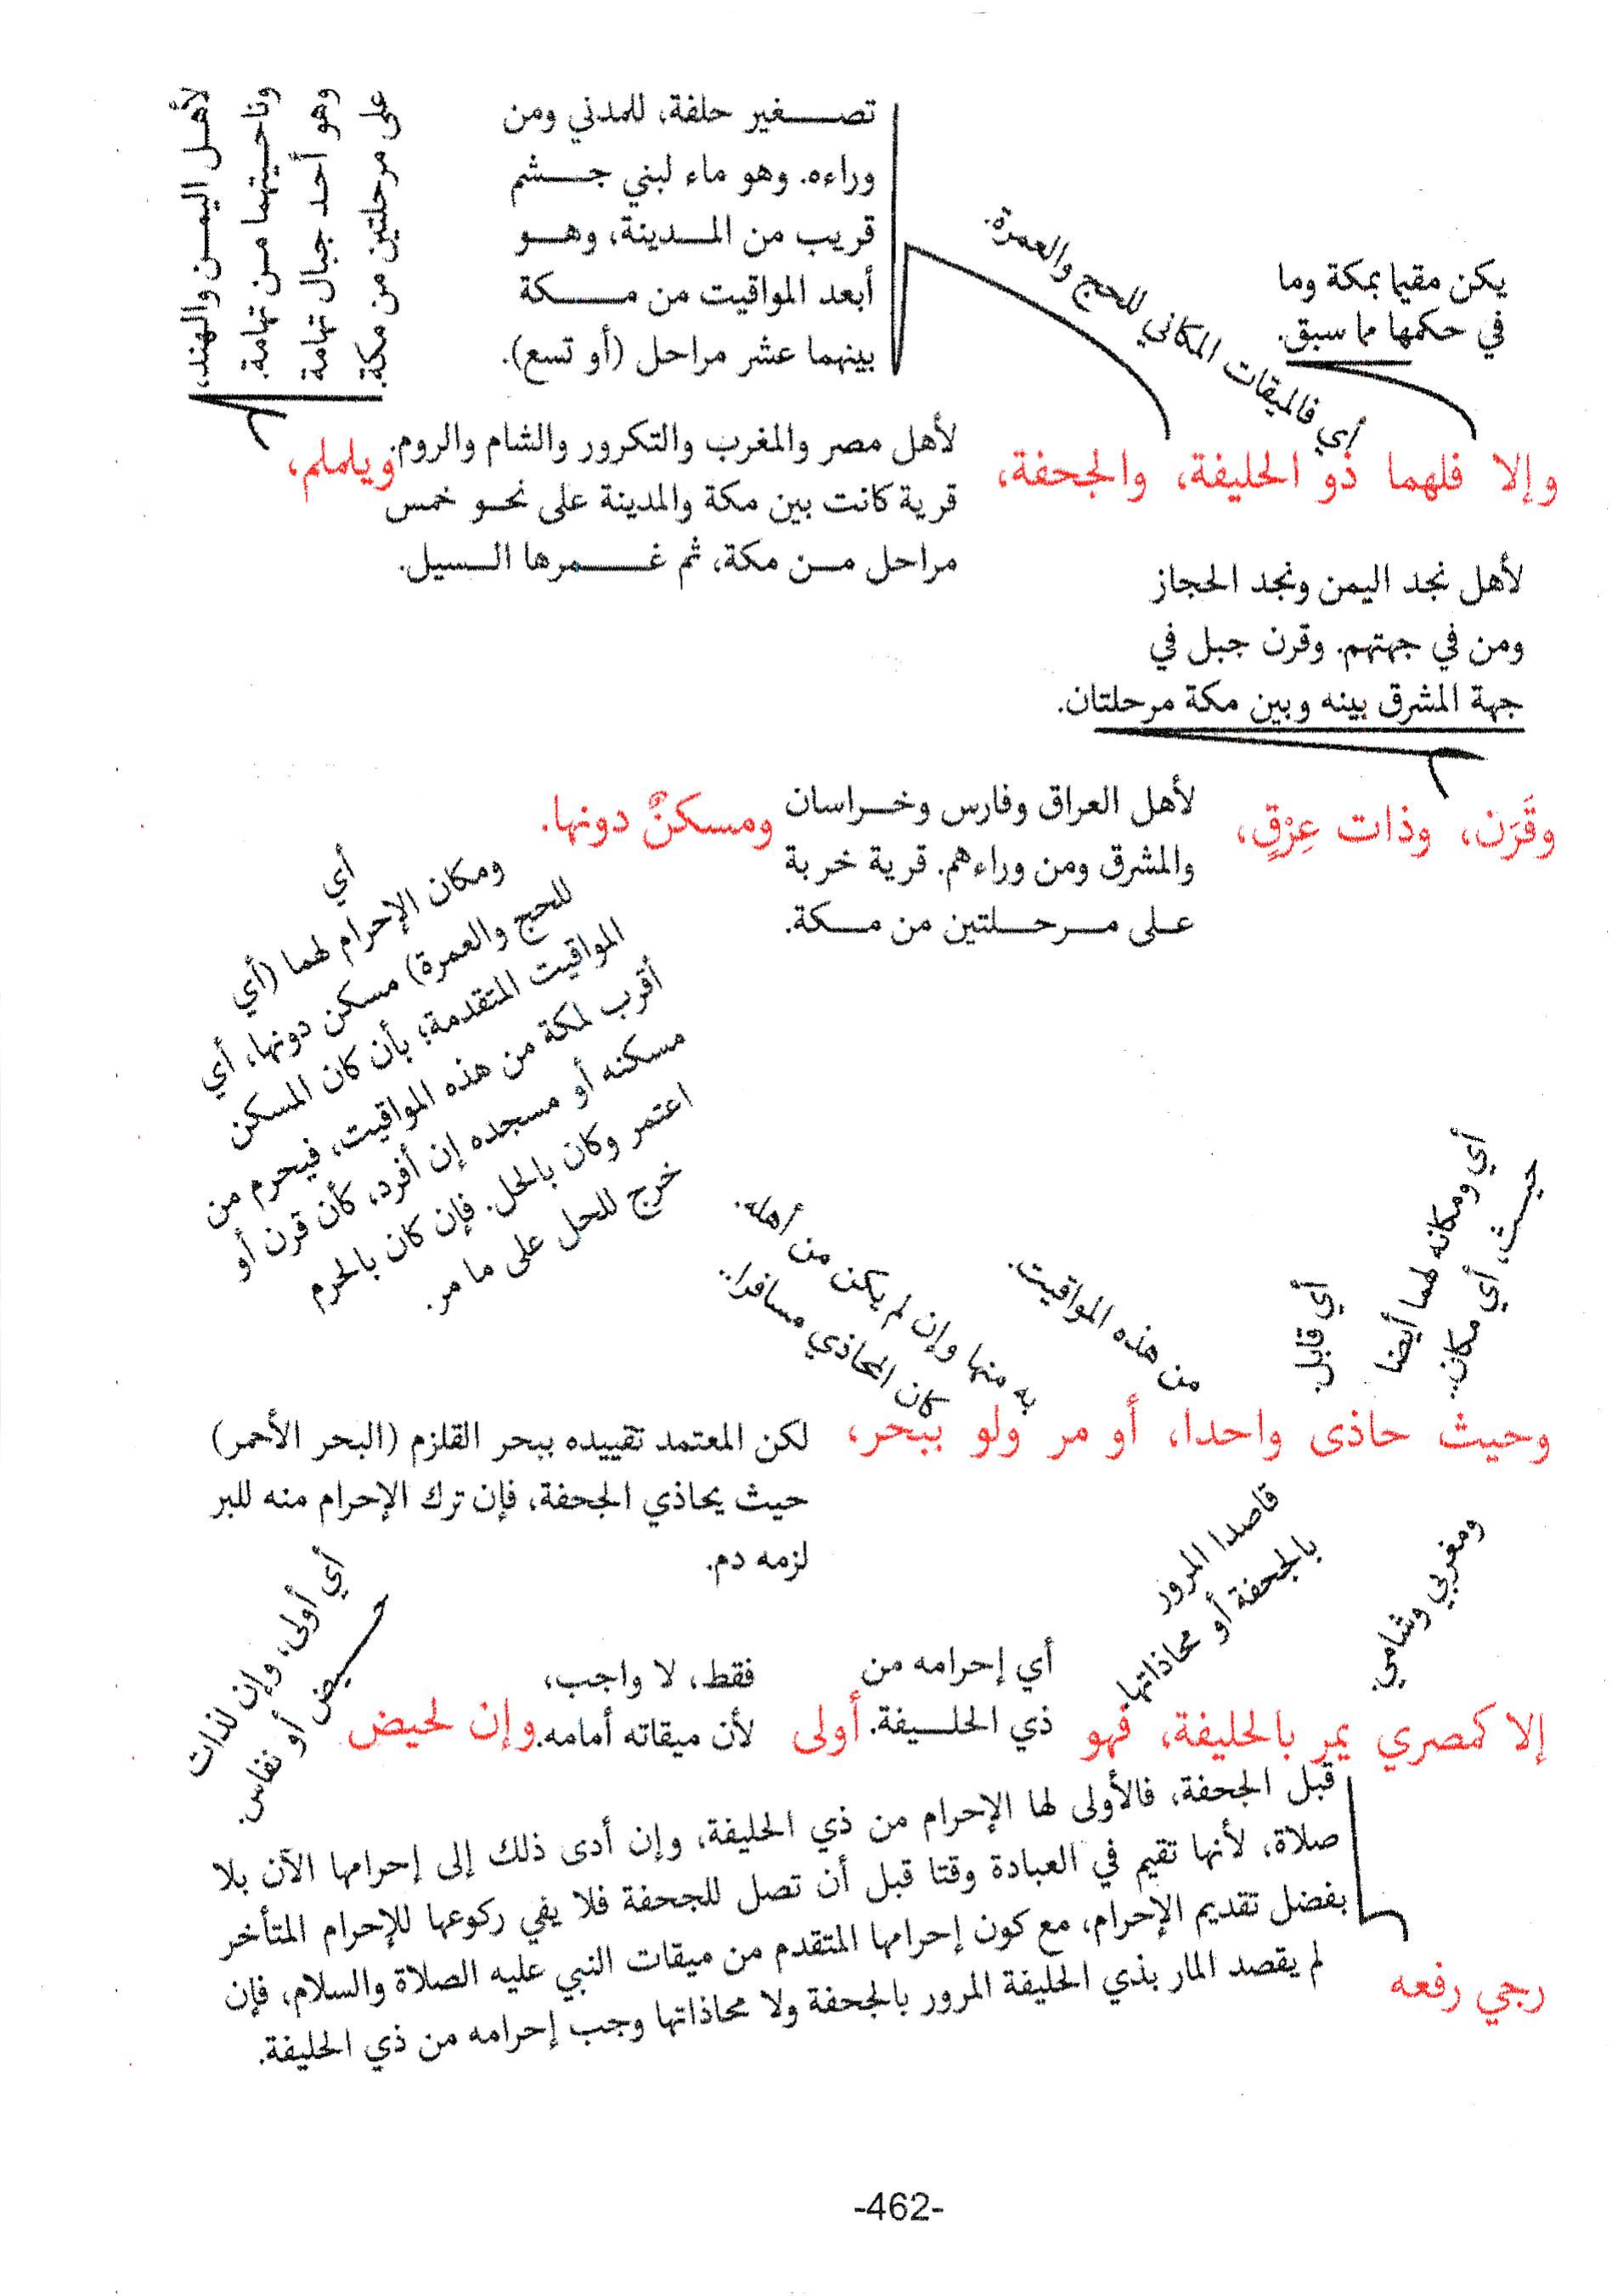 يكن مقيما بمكة وما
في حكمها مما سبق.
وإلا فلهما ذو الحليفة، والجحفة،
أي فالميقات المكاني للحج والعمرة.
تصغير حلفة، للمدني ومن
وراءه. وهو ماء لبني جشم
قريب من المدينة، وهو
أبعد المواقيت من مكة
بينهما عشر مراحل (أو تسع).
لأهل مصر والمغرب والتكرور والشام والروم.
قرية كانت بين مكة والمدينة على نحو خمس
مراحل من مكة، ثم غمرها السيل.
ويلملم،
لأهل اليمن والهند،
وناحيتهما من تهامة.
وهو أحد جبال تهامة
على مرحلتين من مكة.
لأهل نجد اليمن ونجد الحجاز
ومن في جهتهم. وقرن جبل في
جهة المشرق بينه وبين مكة مرحلتان.
وقَرَن، وذات عِرْقٍ،
لأهل العراق وفارس وخراسان
والمشرق ومن وراءهم. قرية خربة
على مرحلتين من مكة.
ومسكنٌ دونها.
أي
ومكان الإحرام لهما (أي
للحج والعمرة) مسكن دونها، أي
المواقيت المتقدمة؛ بأن كان المسكن
أقرب لمكة من هذه المواقيت، فيحرم من
مسكنه أو مسجده إن أفرد، كأن قرن أو
اعتمر وكان بالحل. فإن كان بالحرم
خرج للحل على ما مر.
وحيث حاذى واحدا، أو مر ولو ببحر،
أي ومكانه لهما أيضا
حيث، أي مكان..
أي قابل.
من هذه المواقيت.
به منها وإن لم يكن من أهله.
كان المحاذي مسافرا..
لكن المعتمد تقييده ببحر القلزم (البحر الأحمر)
حيث يحاذي الجحفة، فإن ترك الإحرام منه للبر
لزمه دم.
إلا كمصري يمر بالحليفة، فهو
ومغربي وشامي.
قاصدا المرور
بالجحفة أو محاذاتها.
أي إحرامه من
ذي الحليفة.
أولى
فقط، لا واجب،
لأن ميقاته أمامه.
وإن لحيض
أي أولى، وإن لذات
حيض أو نفاس.
رجي رفعه
قبل الجحفة، فالأولى لها الإحرام من ذي الحليفة، وإن أدى ذلك إلى إحرامها الآن بلا
صلاة، لأنها تقيم في العبادة وقتا قبل أن تصل للجحفة فلا يفي ركوعها للإحرام المتأخر
بفضل تقديم الإحرام، مع كون إحرامها المتقدم من ميقات النبي عليه الصلاة والسلام، فإن
لم يقصد المار بذي الحليفة المرور بالجحفة ولا محاذاتها وجب إحرامه من ذي الحليفة.
-462-